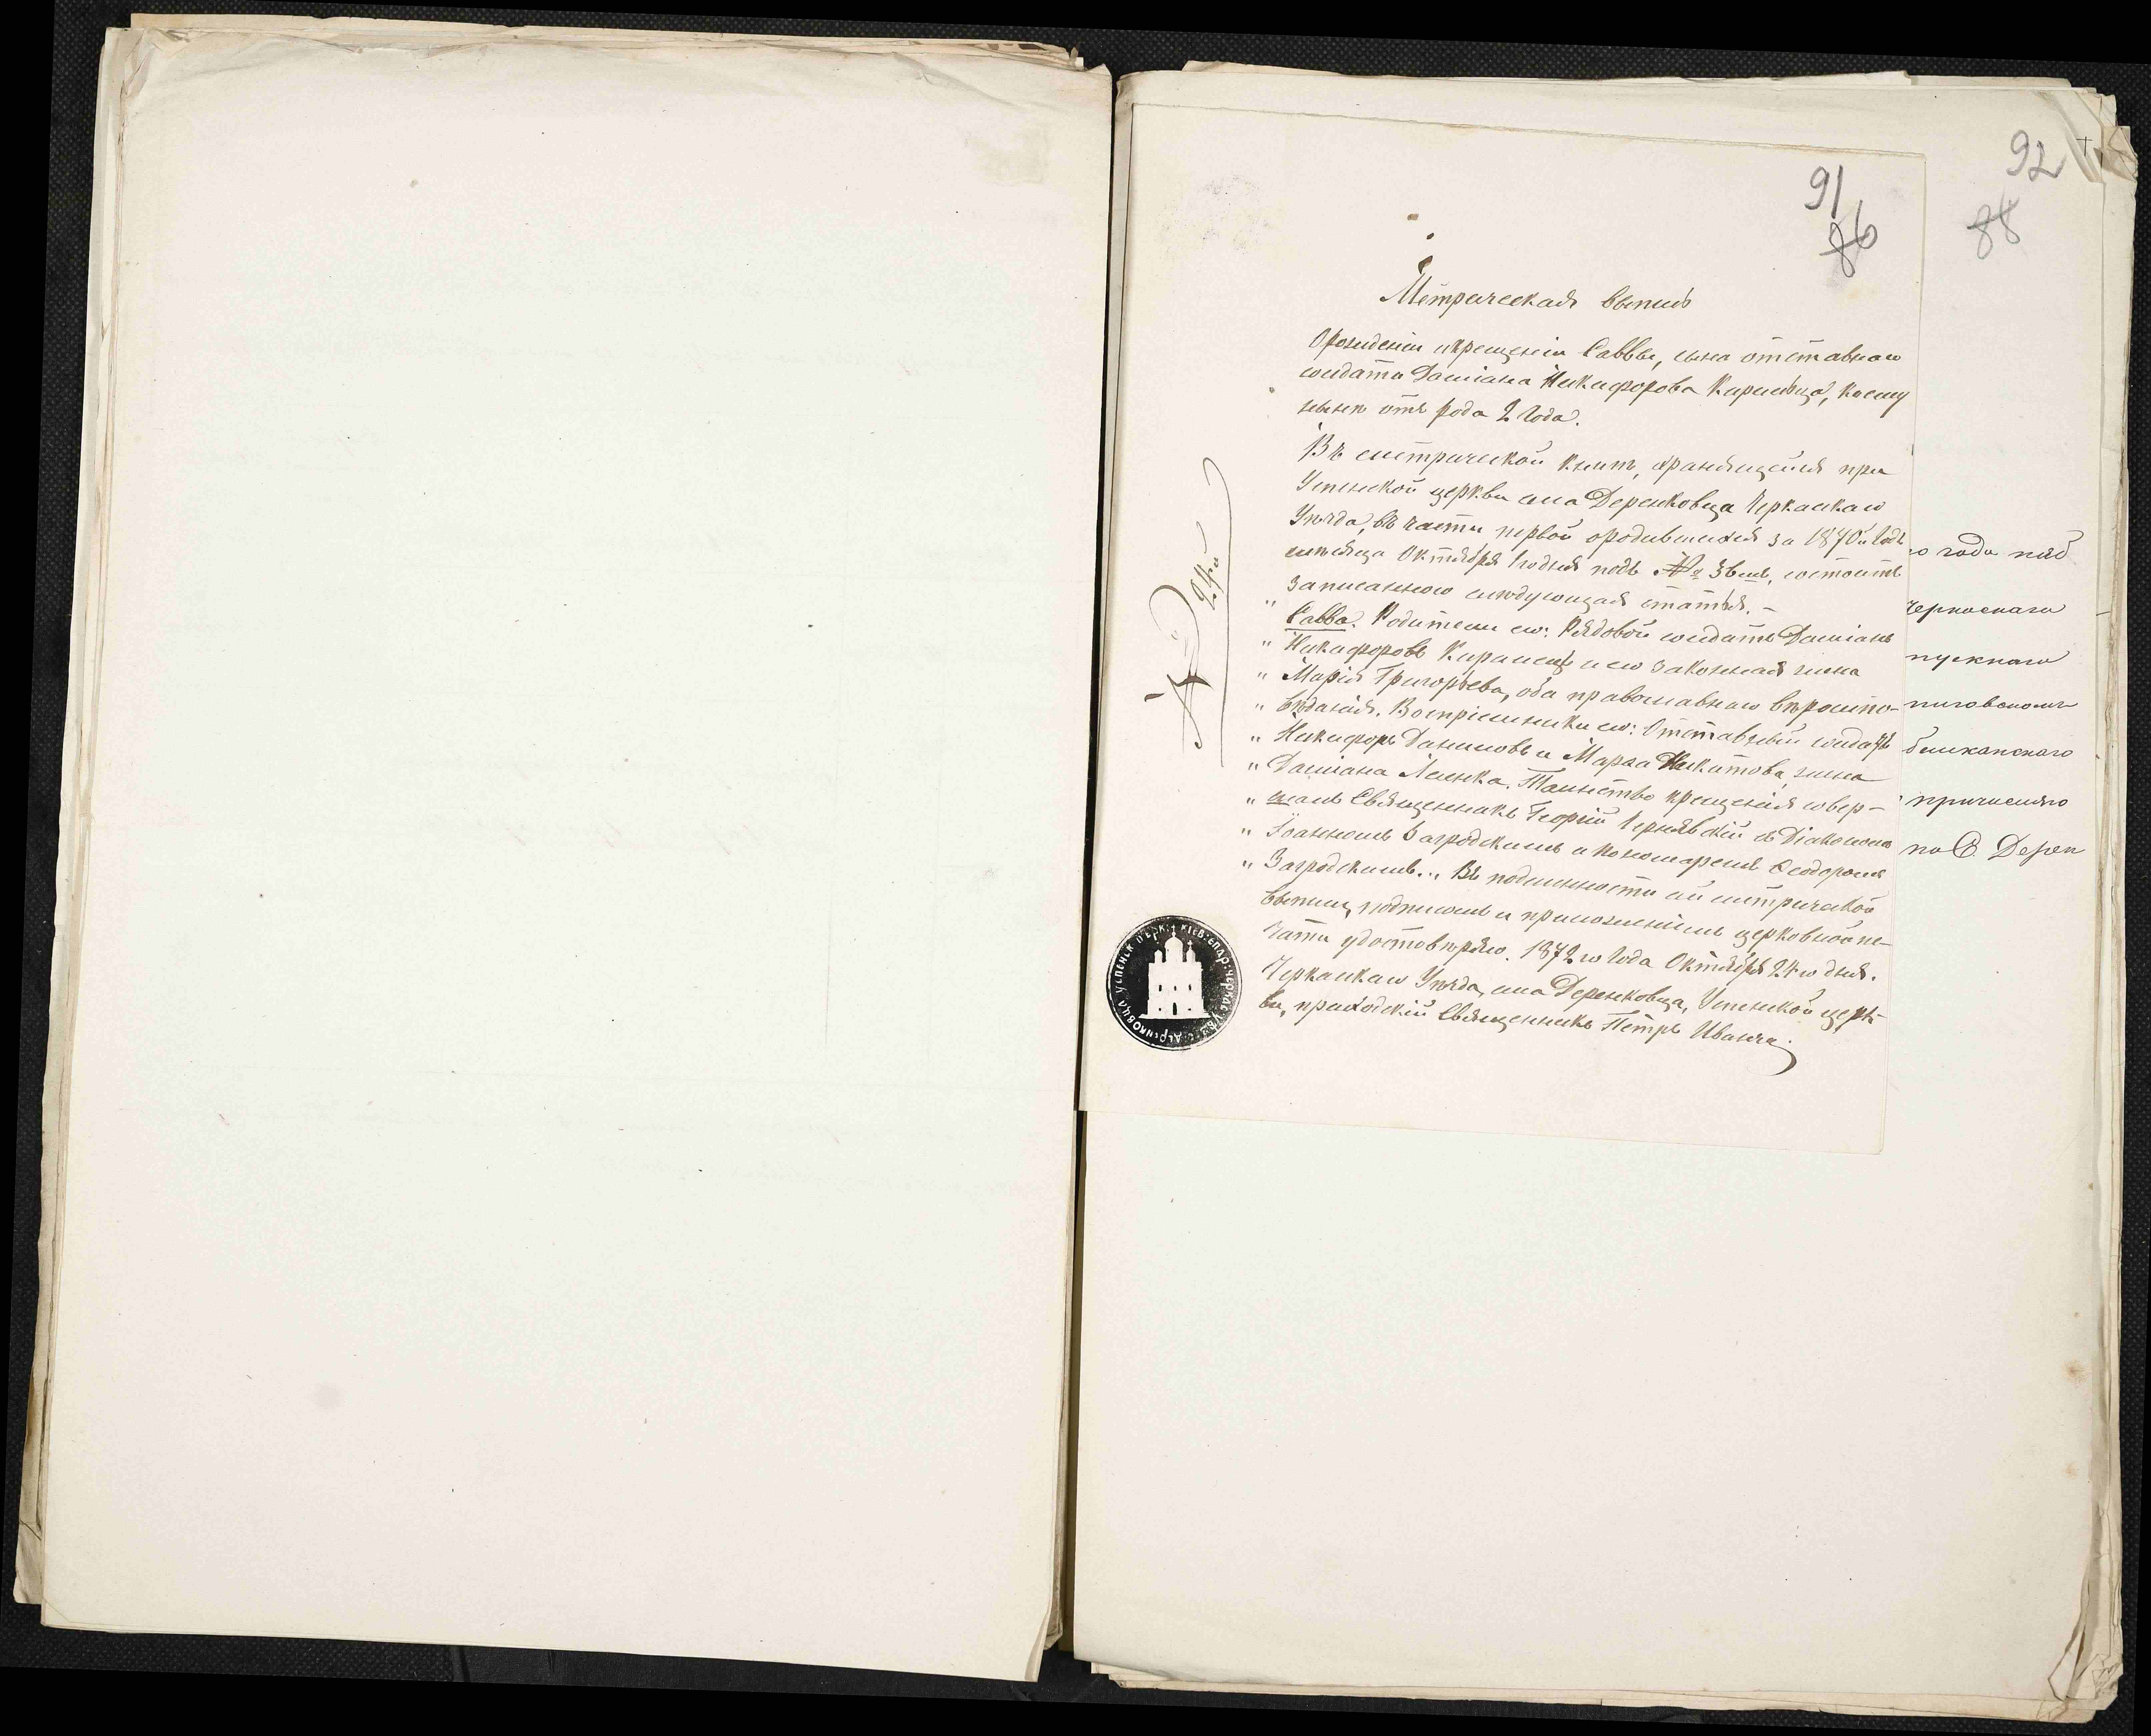 92
88
91
86
Метрическая выпись
О рожденіи и крещеніи Саввы, сына отставнаго
солдата Даміана Никифорова Кирилъца, коему
нынѣ отъ рода 2 года.
Въ метрической книгѣ, хранящейся при
Успенской церкви села Деренковца Черкаскаго
Уѣзда, въ части первой о родившихся за 1870й годъ
мѣсяца Октября 1го дня подъ № 36мъ, состоитъ
записанною слѣдующая статья. –
" Савва. Родители его: Рядовой солдатъ Даміанъ
" Никифоровъ и его законная жена
" Марія Григорьева, оба православнаго вѣроиспо-
" вѣданія. Воспріемники его: Отставный солдатъ
" Никифоръ Даниловъ и Марѳа Никитова, жена
" Даміана. Таинство крещенія совер-
" шалъ Священникъ Георгій Чернявскій съ Діакономъ
" Іоанномъ Загродскимъ и пономаремъ Ѳеодоромъ
" Загродскимъ... Въ подлинности сей метрической
выписи, подписомъ и приложеніемъ церковной пе-
чати удостовѣряю. 1872го Года Октября 24го дня.
Черкаскаго Уѣзда, села Деренковца, Успенской церк-
ви, приходскій Священникъ Петръ Иванча
24й
го года под
Черкаскаго
пускнаго
причислено
по С. Дерен
ДЕРЕНКОВЦА УСПЕНСК ЦЕРК: КІЕВ: ЕПАР: ЧЕРКАС: УѢЗ: С: